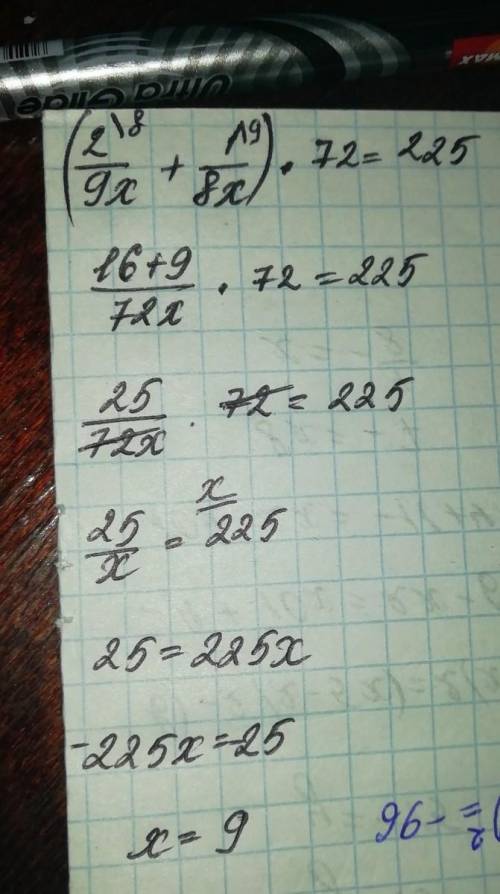 Ultra Glide
MAX
(2\8/9x + 1\9/8x) · 72 = 225
16+9/72x · 72 = 225
25/72x · 72 = 225
x
25/x = 225
25 = 225x
-225x = -25
x = 9
)2 = -96